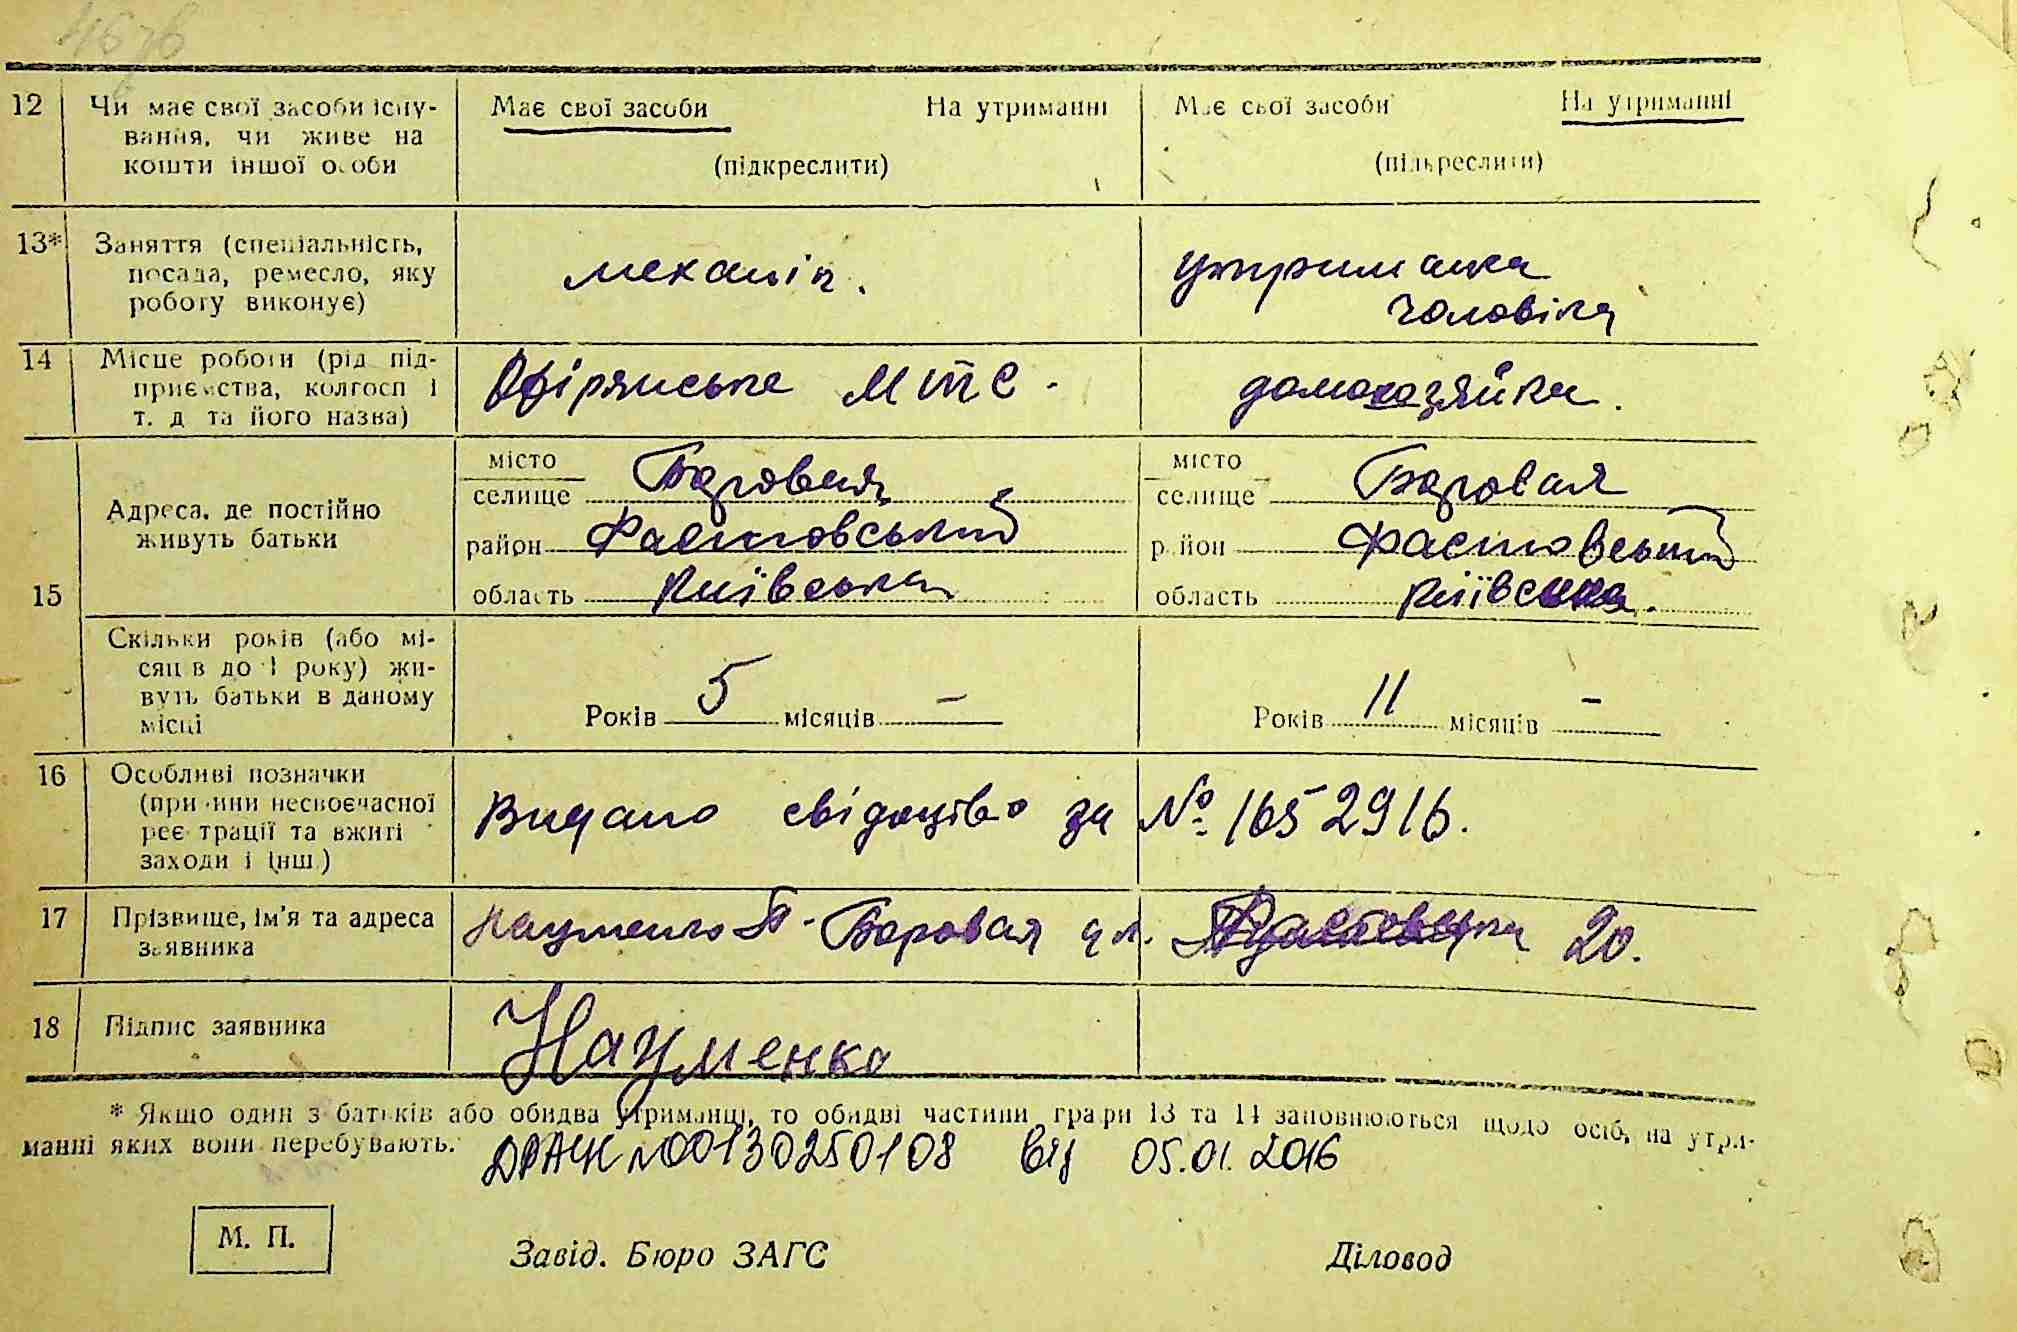 12 Чи має свої засоби існу- Має свої засоби На утриманні Має свої засоби На утриманні
вання, чи живе на
кошти іншої особи (підкреслити) (підкреслити)
13* Заняття (спеціальність,
посада, ремесло, яку механік. утриманка
роботу виконує) чоловіка
14 Місце роботи (рід під-
приємства, колгосп і Офірянське МТС. домохозяйка.
т. д та його назва)
місто Боровая місто Боровая
селище селище
Адреса, де постійно
живуть батьки район Фастовський район Фастовський
15 область Київська область Київська.
Скільки років (або мі-
сяців до 1 року) жи-
вуть батьки в даному
місці Років 5 місяців – Років 11 місяців –
16 Особливі позначки
(причини несвоєчасної
реєстрації та вжиті Видано свідоцтво за № 1652916.
заходи і інш.)
17 Прізвище, ім'я та адреса Науменко П. Боровая ул. 20.
заявника
18 Підпис заявника Науменко
* Якщо один з батьків або обидва утриманці, то обидві частини графи 13 та 14 заповнюються щодо осіб, на утри-
манні яких вони перебувають.
ДРАЦС №00130250108 від 05.01.2016
М. П. Завід. Бюро ЗАГС Діловод